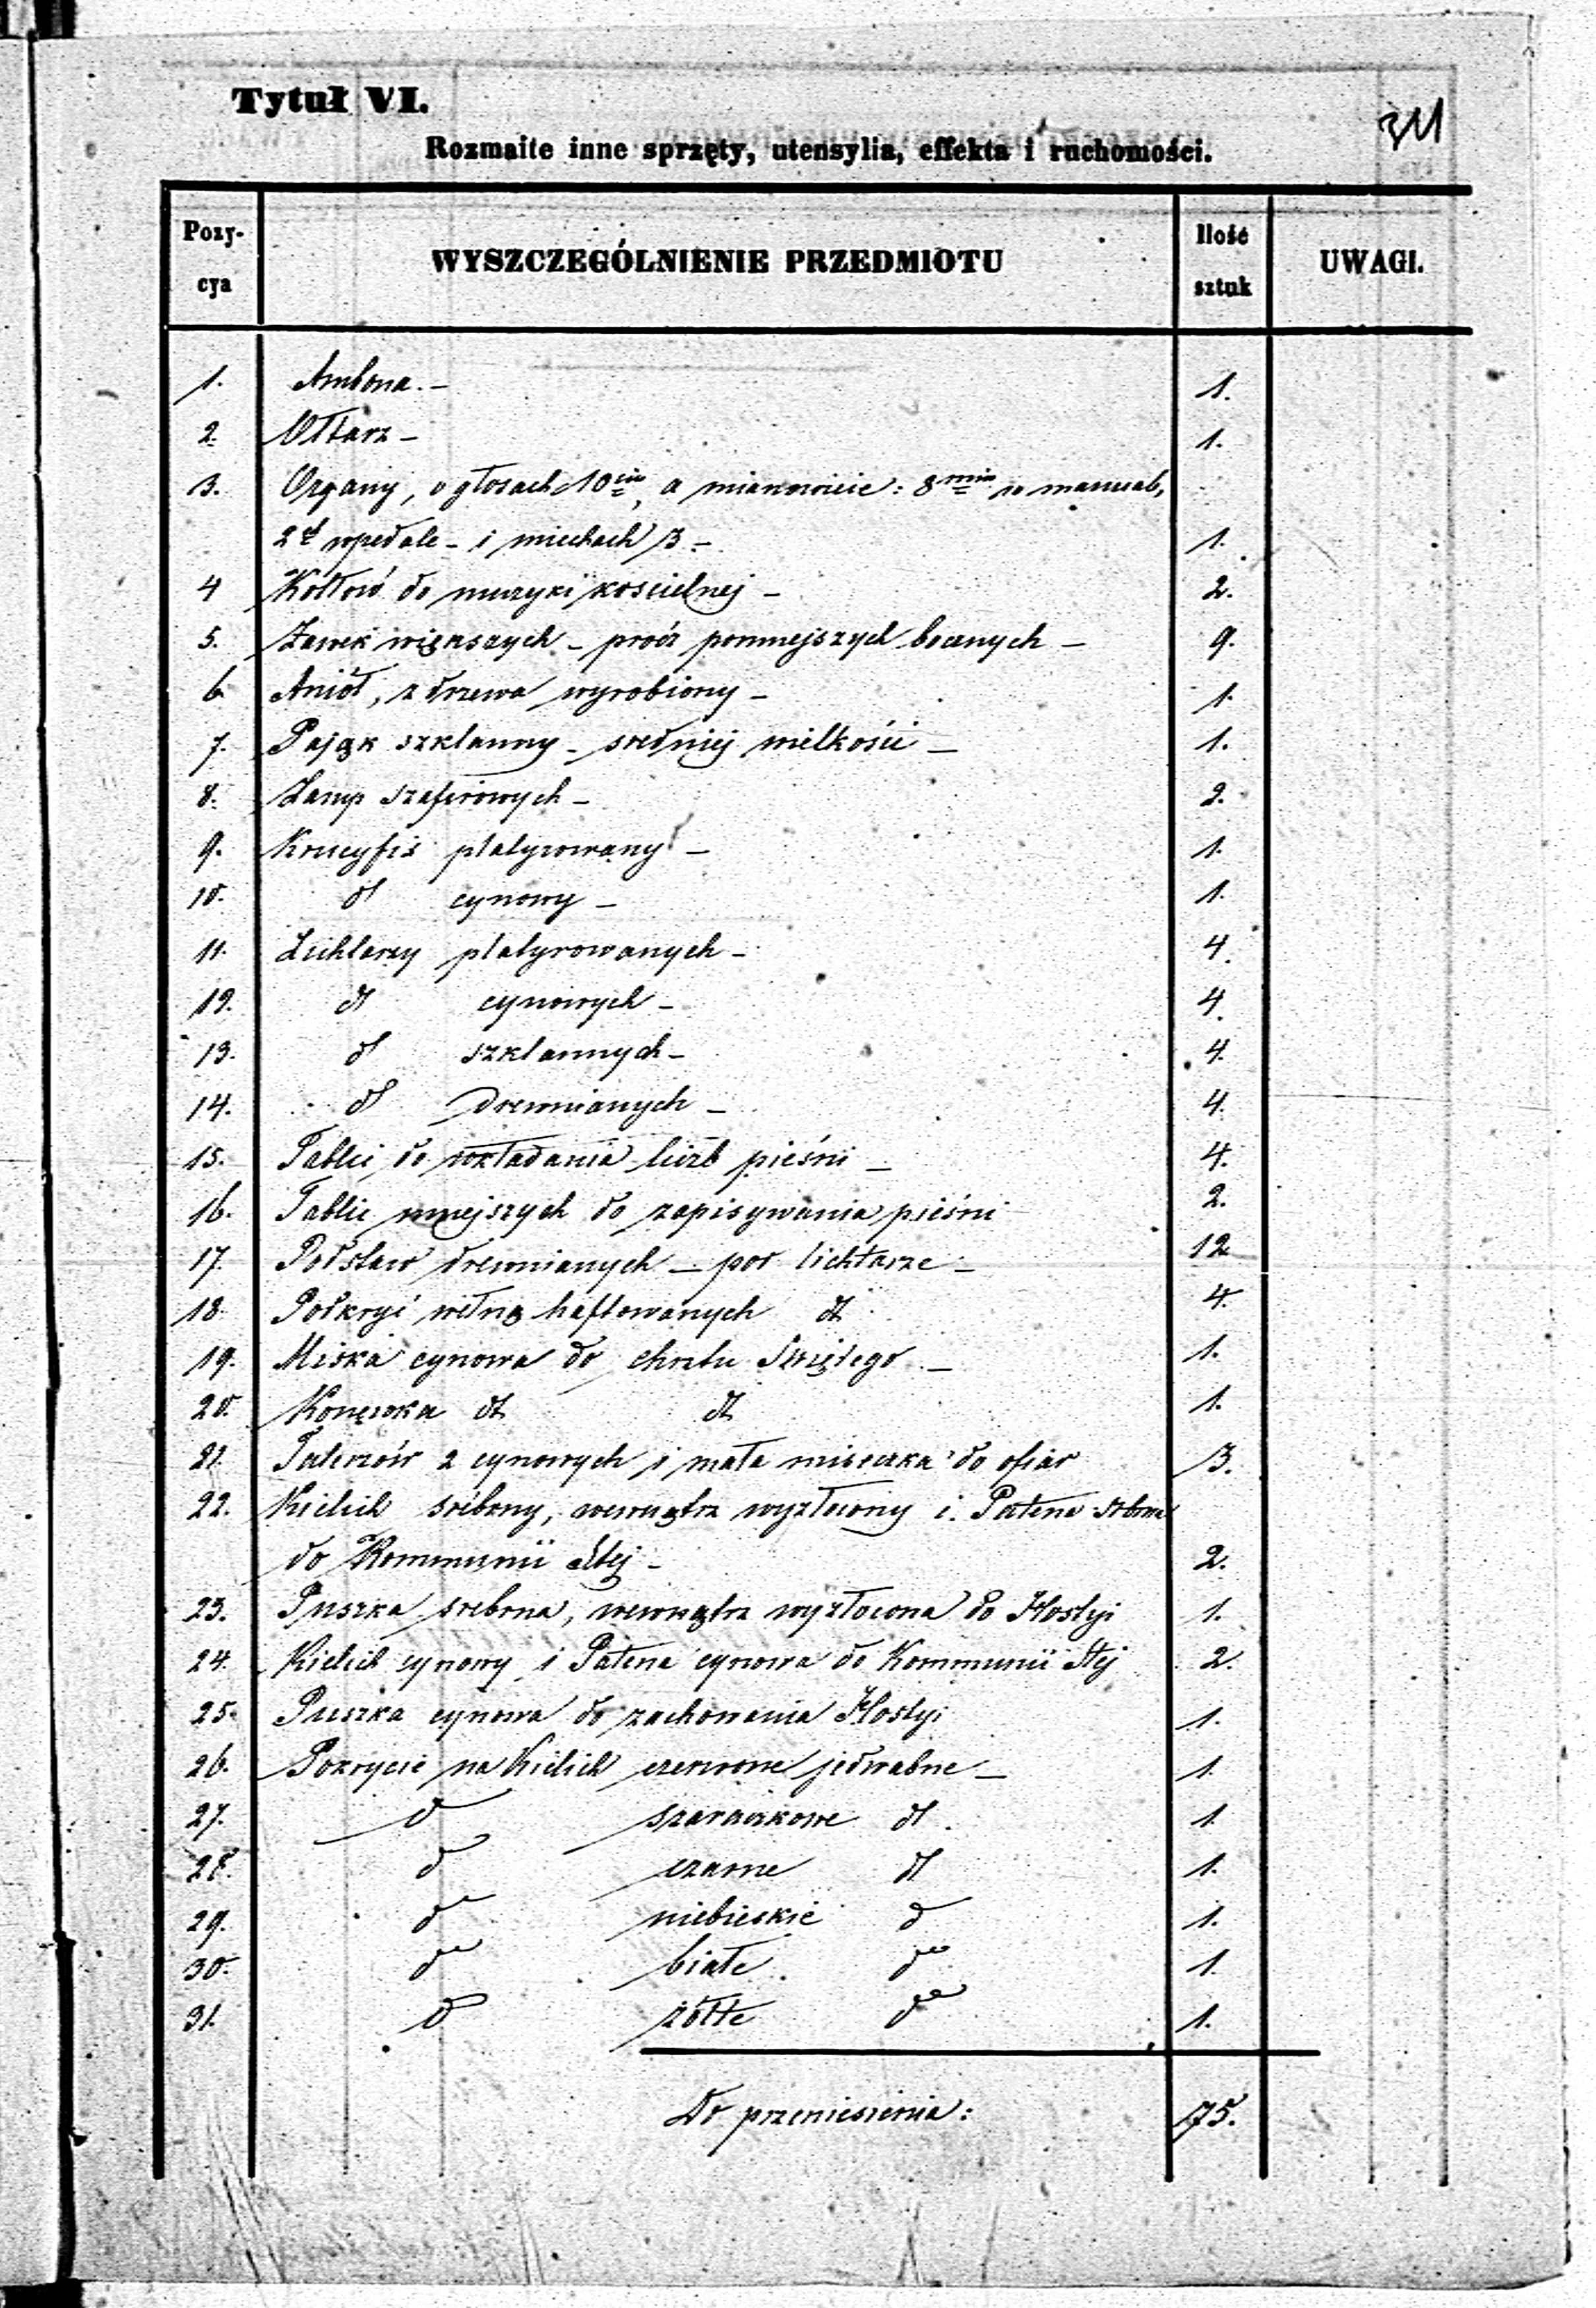 Tytuł VI.
311
Rozmaite inne sprzęty, utensylia, effekta i ruchomości.
Pozy-cya WYSZCZEGÓLNIENIE PRZEDMIOTU Ilość sztuk UWAGI.
1. Ambona. – 1.
2. Ołtarz – 1.
3. Organy, o głosach 10ciu, a mianowicie: 8miu w manual,
2ch w pedale – i miechach 3 – 1.
4 Kotłów do muzyki kościelnej – 2.
5. Ławek większych – prócz pomniejszych bocznych – 9.
6. Anioł, z drzewa wyrobiony – 1.
7. Pająk szklanny – średniej wielkości – 1.
8. Lamp szafirowych – 2.
9. Krucyfix platyrowany – 1.
10. dt cynowy – 1.
11. Lichtarzy platyrowanych – 4.
12. dt cynowych – 4.
13. dt szklannych – 4.
14. dt drewnianych – 4.
15. Tablic do wkładania liczb pieśni – 4.
16. Tablic mniejszych do zapisywania pieśni 2.
17. Podstaw drewnianych – pod lichtarze – 12
18. Podkryć wełną haftowanych dt 4.
19. Miska cynowa do chrztu Świętego. – 1.
20. Konewka dt dt 1.
21. Talerzów 2 cynowych i mała miseczka do ofiar 3.
22. Kielich srebrny, wewnątrz wyzłocony i Patena srbrna
do Kommunii Stej – 2.
23. Puszka srebrna, wewnątrz wyzłocona do Hostyi 1.
24. Kielich cynowy i Patena cynowa do Kommunii Stej 2.
25. Puszka cynowa do zachowania Hostyi 1.
26. Pokrycie na Kielich czerwone jedwabne – 1.
27. dt szaraczkowe dt 1.
28. dt czarne dt 1.
29. dt niebieskie dt 1.
30. dt białe dt 1.
31. dt żółte dt 1.
Do przeniesienia: 75.